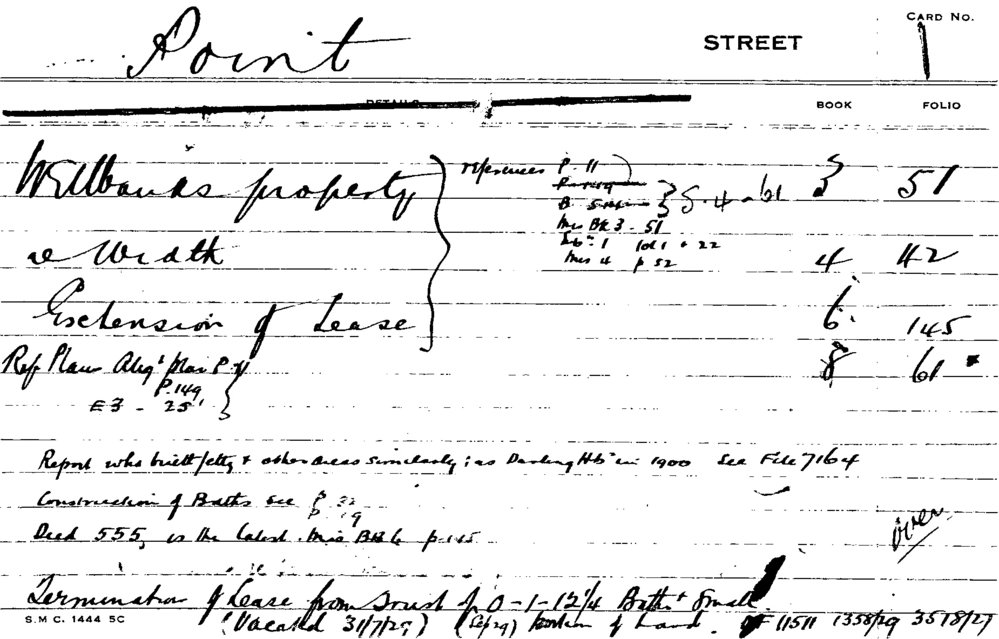 CARD NO.
Point STREET 1
DETAILS BOOK FOLIO
property references P. 11 3 51
5.4-61
Mis Bk 3 - 51
re Width 4 42
Mis 4 p 52
Extension of Lease 6. 145
Ref Plan Plan P. 11 8 61
P. 149
E3 - 25
Report who built jetty & other areas similarly; as Darling Hb in 1900 See File 7164
Construction of Baths see P 32
P 19
Deed 555, is the latest. Mis Bk 6 p. 145
over
Termination of Lease from Trust of 0-1-12 1/4 Baths & Small
S.M.C. 1444 5C (Vacated 31/7/29) portion of Land. 11511 1358/29 3578/27